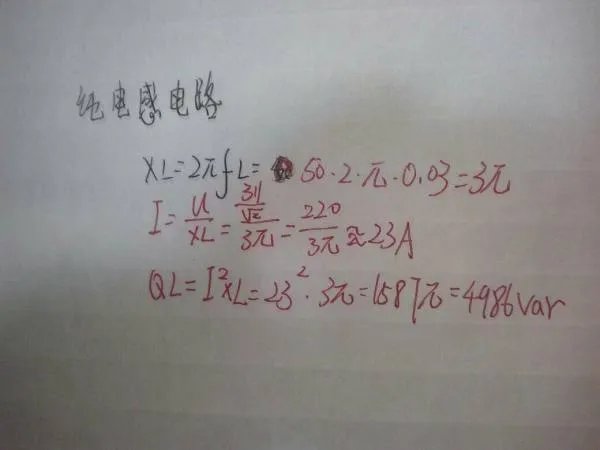 纯电感电路
XL=2πfL= 50·2·π·0.03=3π
I=U/XL=(311/√2)/3π=220/3π≈23A
QL=I²XL=23²·3π=1587π=4986var